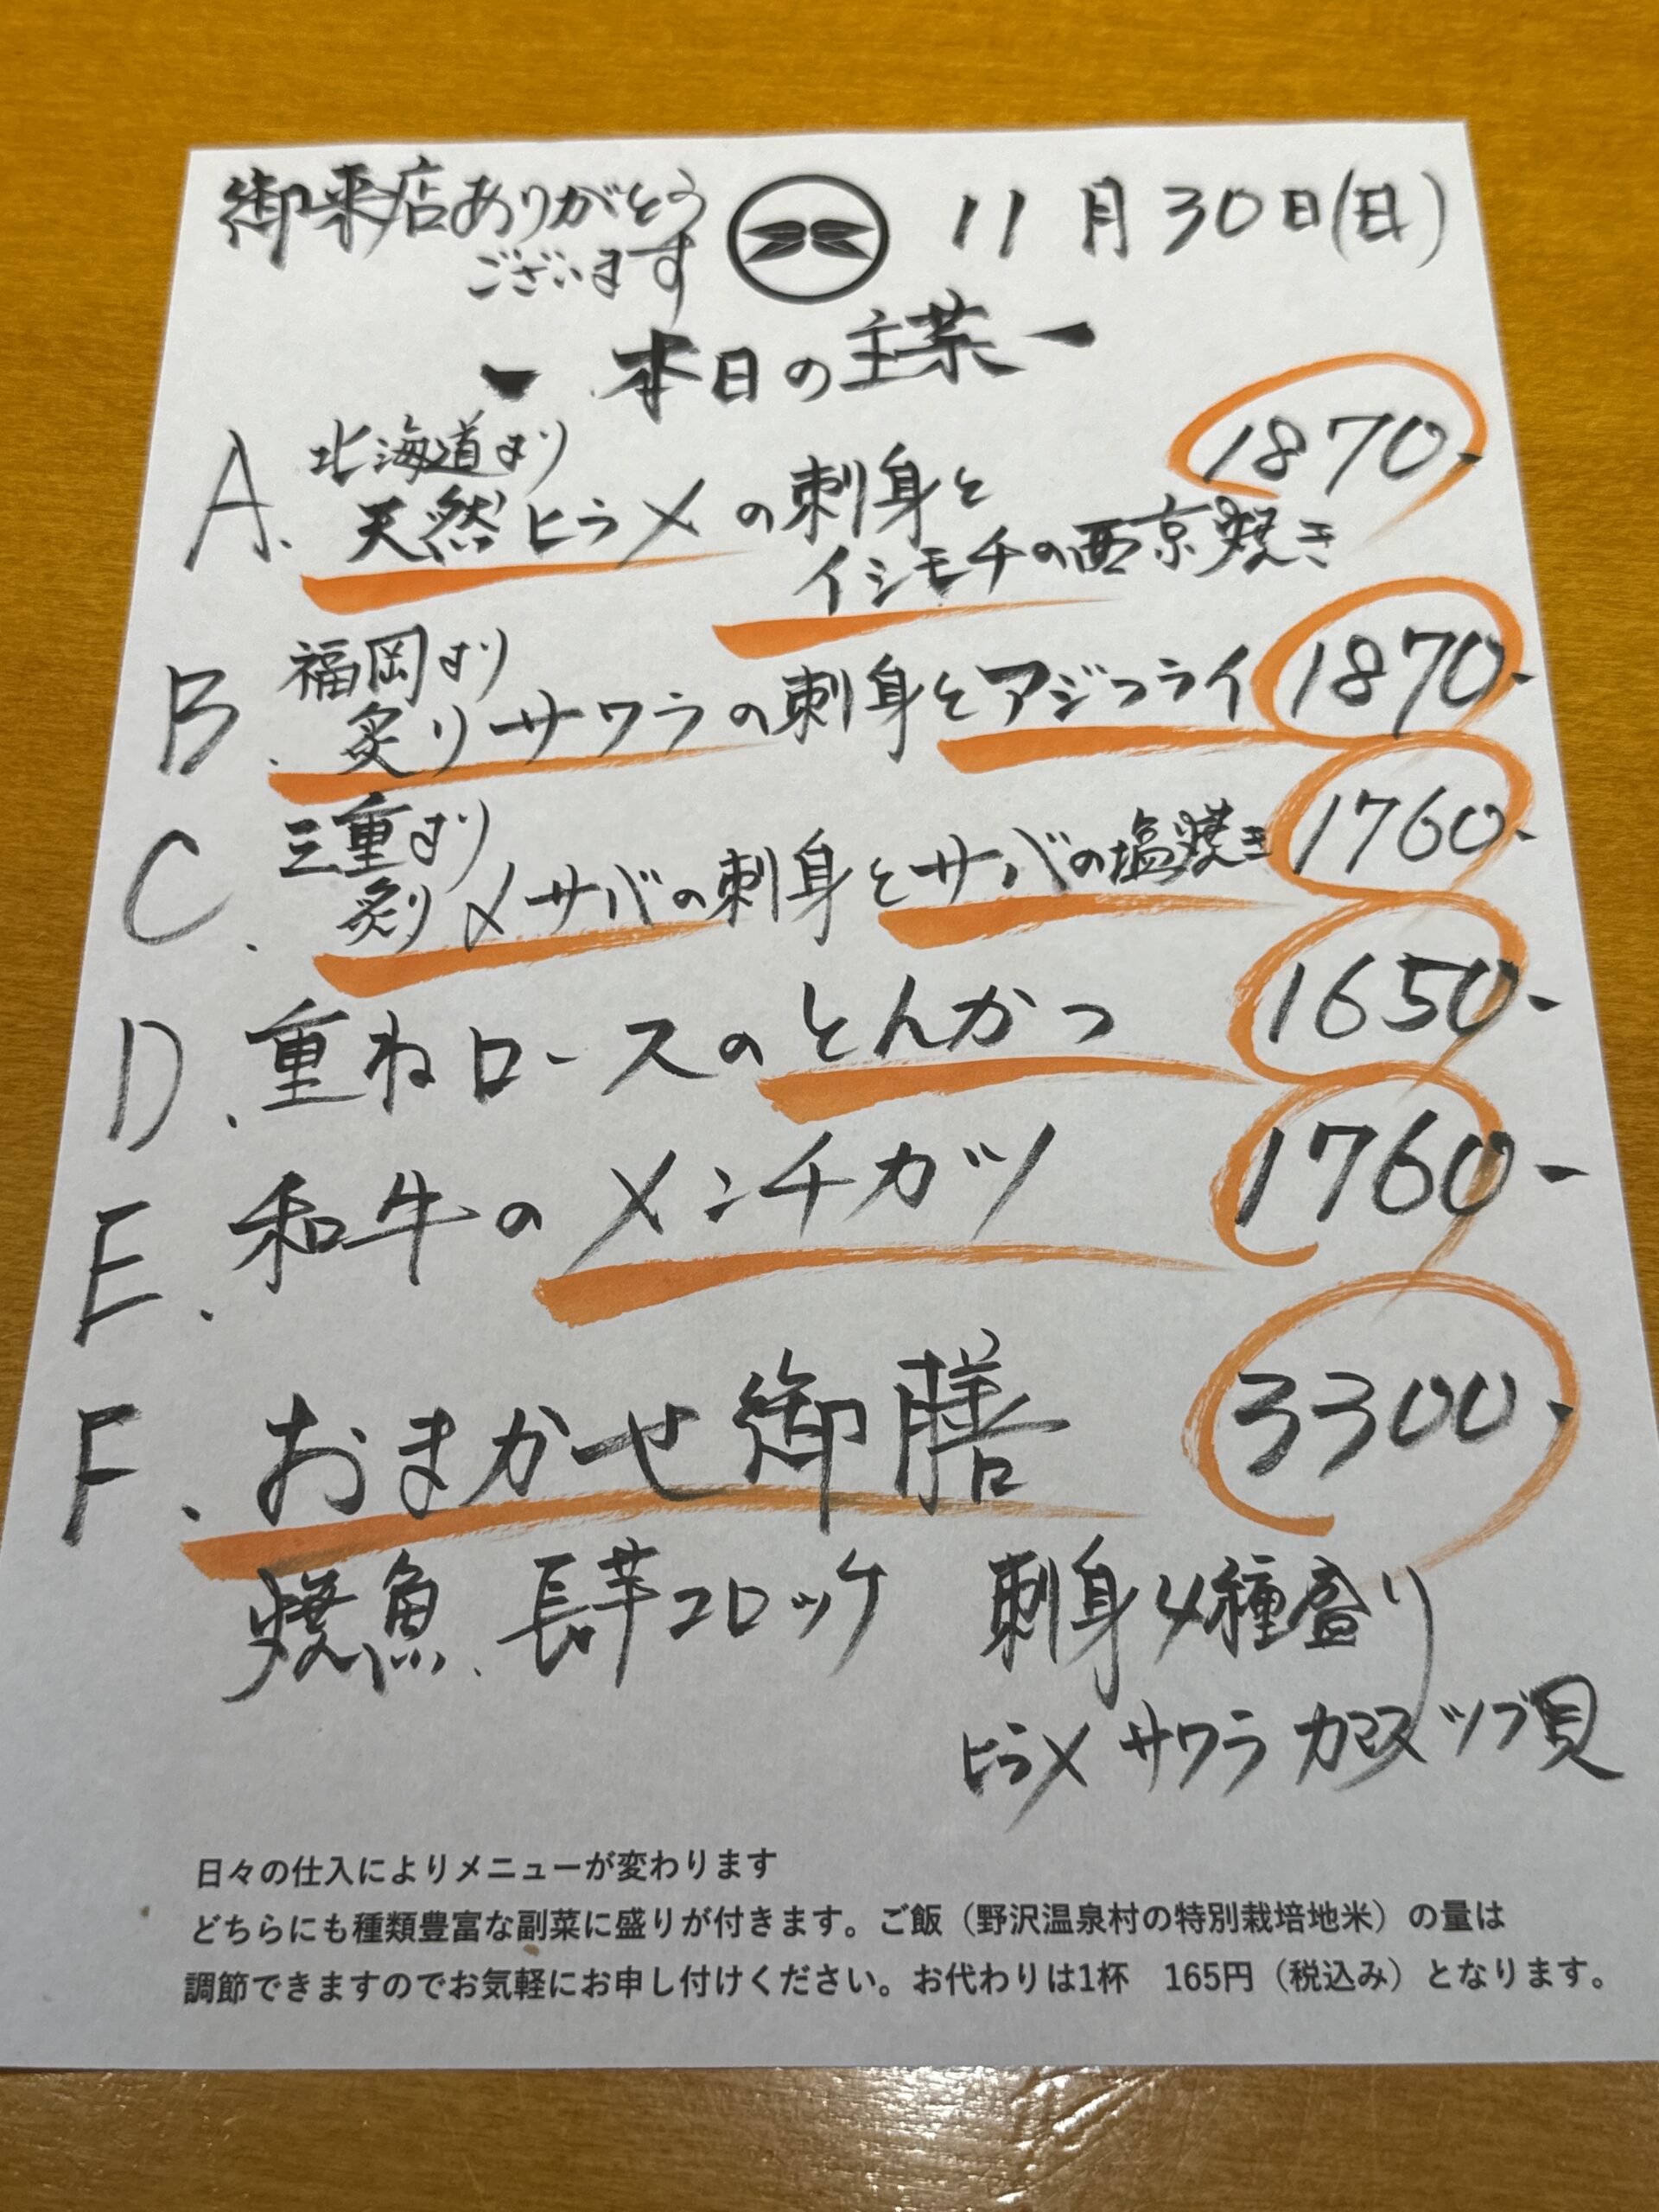 御来店ありがとう
ございます
11月30日(日)
- 本日の主菜 -
A. 北海道より
天然ヒラメの刺身と
イシモチの西京焼き
1870-
B. 福岡より
炙りサワラの刺身とアジフライ 1870-
C. 三重より
炙り〆サバの刺身とサバの塩焼き 1760-
D. 重ねロースのとんかつ 1650-
E. 和牛のメンチカツ 1760-
F. おまかせ御膳 3300-
焼魚、長芋コロッケ 刺身4種盛り
ヒラメ サワラ カマス ツブ貝
日々の仕入によりメニューが変わります
どちらにも種類豊富な副菜に盛りが付きます。ご飯（野沢温泉村の特別栽培地米）の量は
調節できますのでお気軽にお申し付けください。お代わりは1杯 165円（税込み）となります。